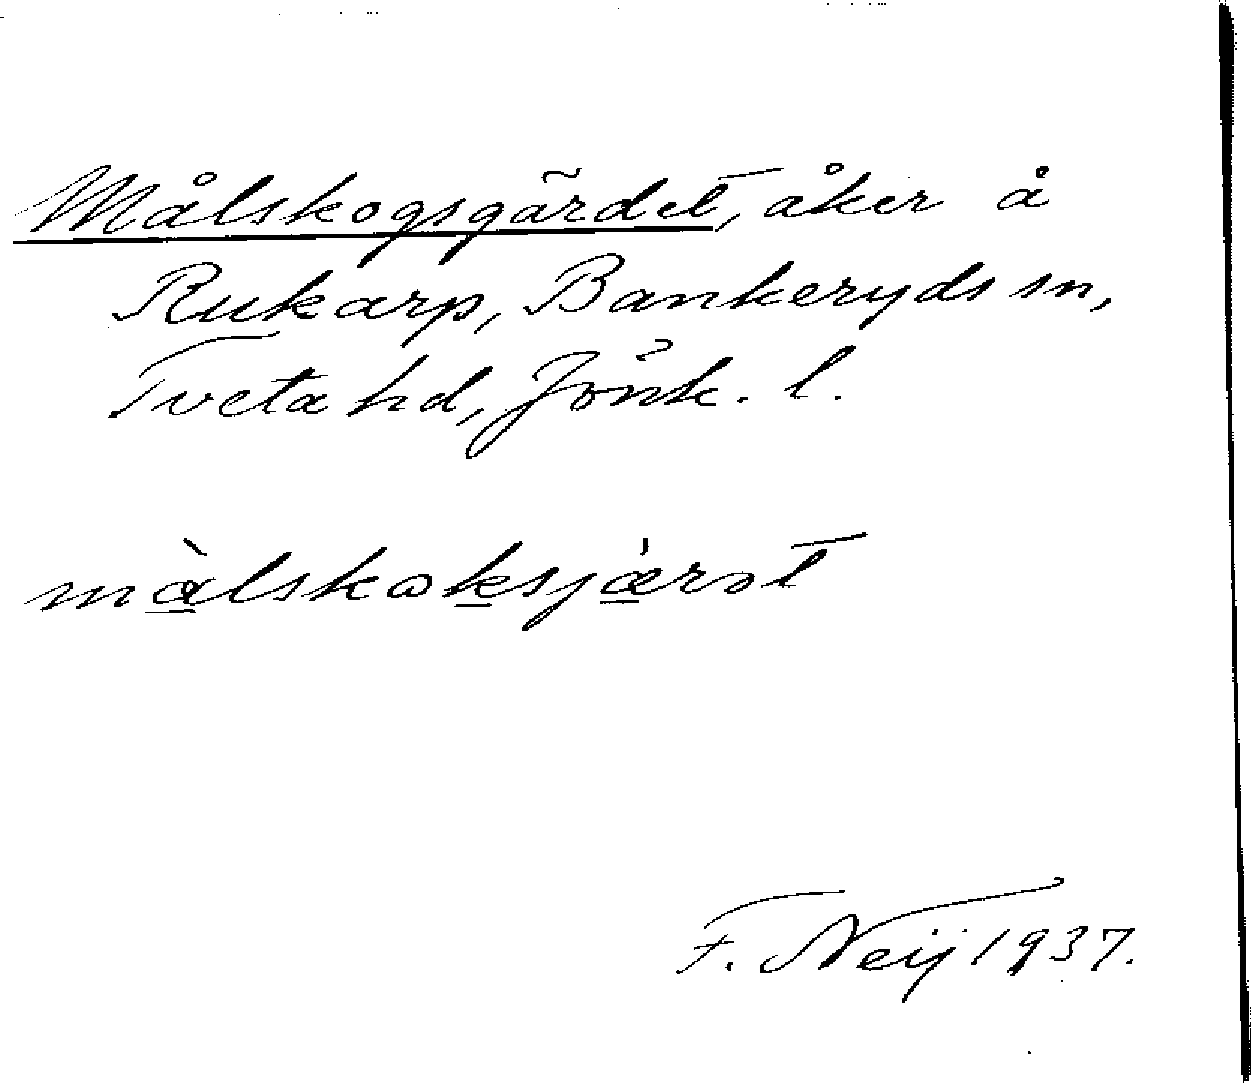 Målskogsgärdet, åker å
Rukarp, Bankeryds sn,
Tveta hd, Jönk. l.
màlskoksjärət
F. Neij 1937.